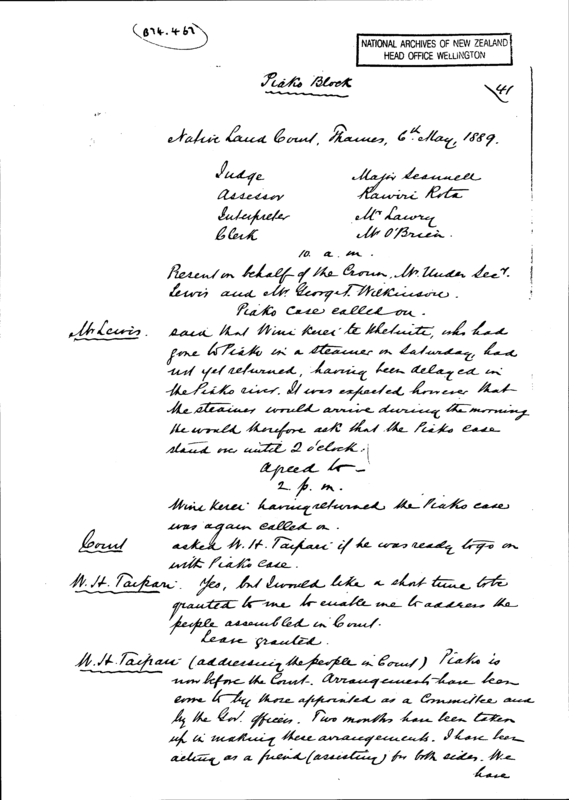 B74.467
NATIONAL ARCHIVES OF NEW ZEALAND
HEAD OFFICE WELLINGTON
Piako Block
41
Native Land Court, Thames, 6th May, 1889.
Judge Major Scannell
Assessor Rawiri Rota
Interpreter Mr Lawry
Clerk Mr O'Brien.
10. a. m.
Present on behalf of the Crown, Mr. Under Secy.
Lewis and Mr. George T. Wilkinson.
Piako case called on.
Mr Lewis. said that Wini Kerei te Whetuiti, who had
gone to Piako in a steamer on Saturday, had
not yet returned, having been delayed in
the Piako river. It was expected however that
the steamer would arrive during the morning
He would therefore ask that the Piako case
stand over until 2 o'clock.
Agreed to –
2. p. m.
Wini Kerei having returned the Piako case
was again called on.
Court asked W. H. Taipari if he was ready to go on
with Piako case.
W. H. Taipari. Yes, but I would like a short time to be
granted to me to enable me to address the
people assembled in Court.
Leave granted.
W. H. Taipari (addressing the people in Court) Piako is
now before the Court. Arrangements have been
come to by those appointed as a Committee and
by the Gov. officers. Two months have been taken
up in making these arrangements. I have been
acting as a friend (assisting) for both sides. We
have